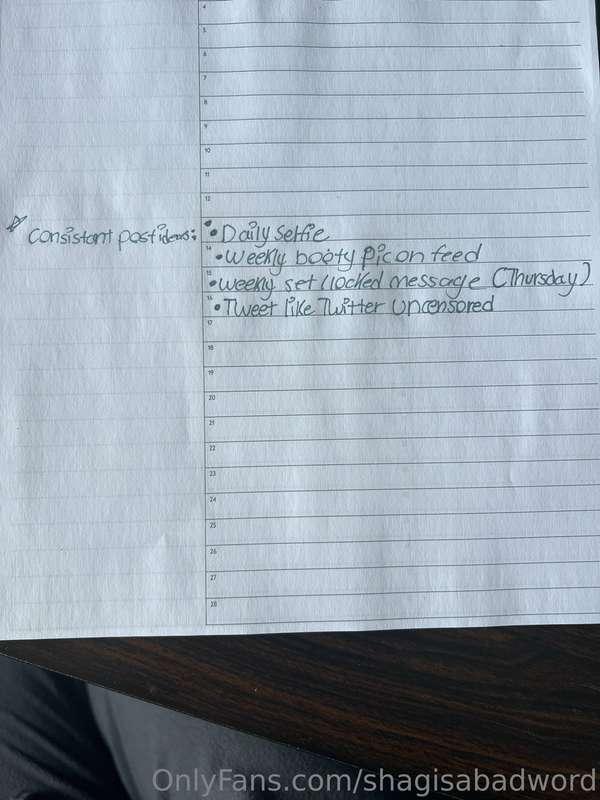 4
5
6
7
8
9
10
11
12
Consistant post ideas: • Daily selfie
14 • Weekly booty pic on feed
15 • Weekly set (locked message (Thursday)
16 • Tweet like Twitter uncensored
17
18
19
20
21
22
23
24
25
26
27
28
OnlyFans.com/shagisabadword